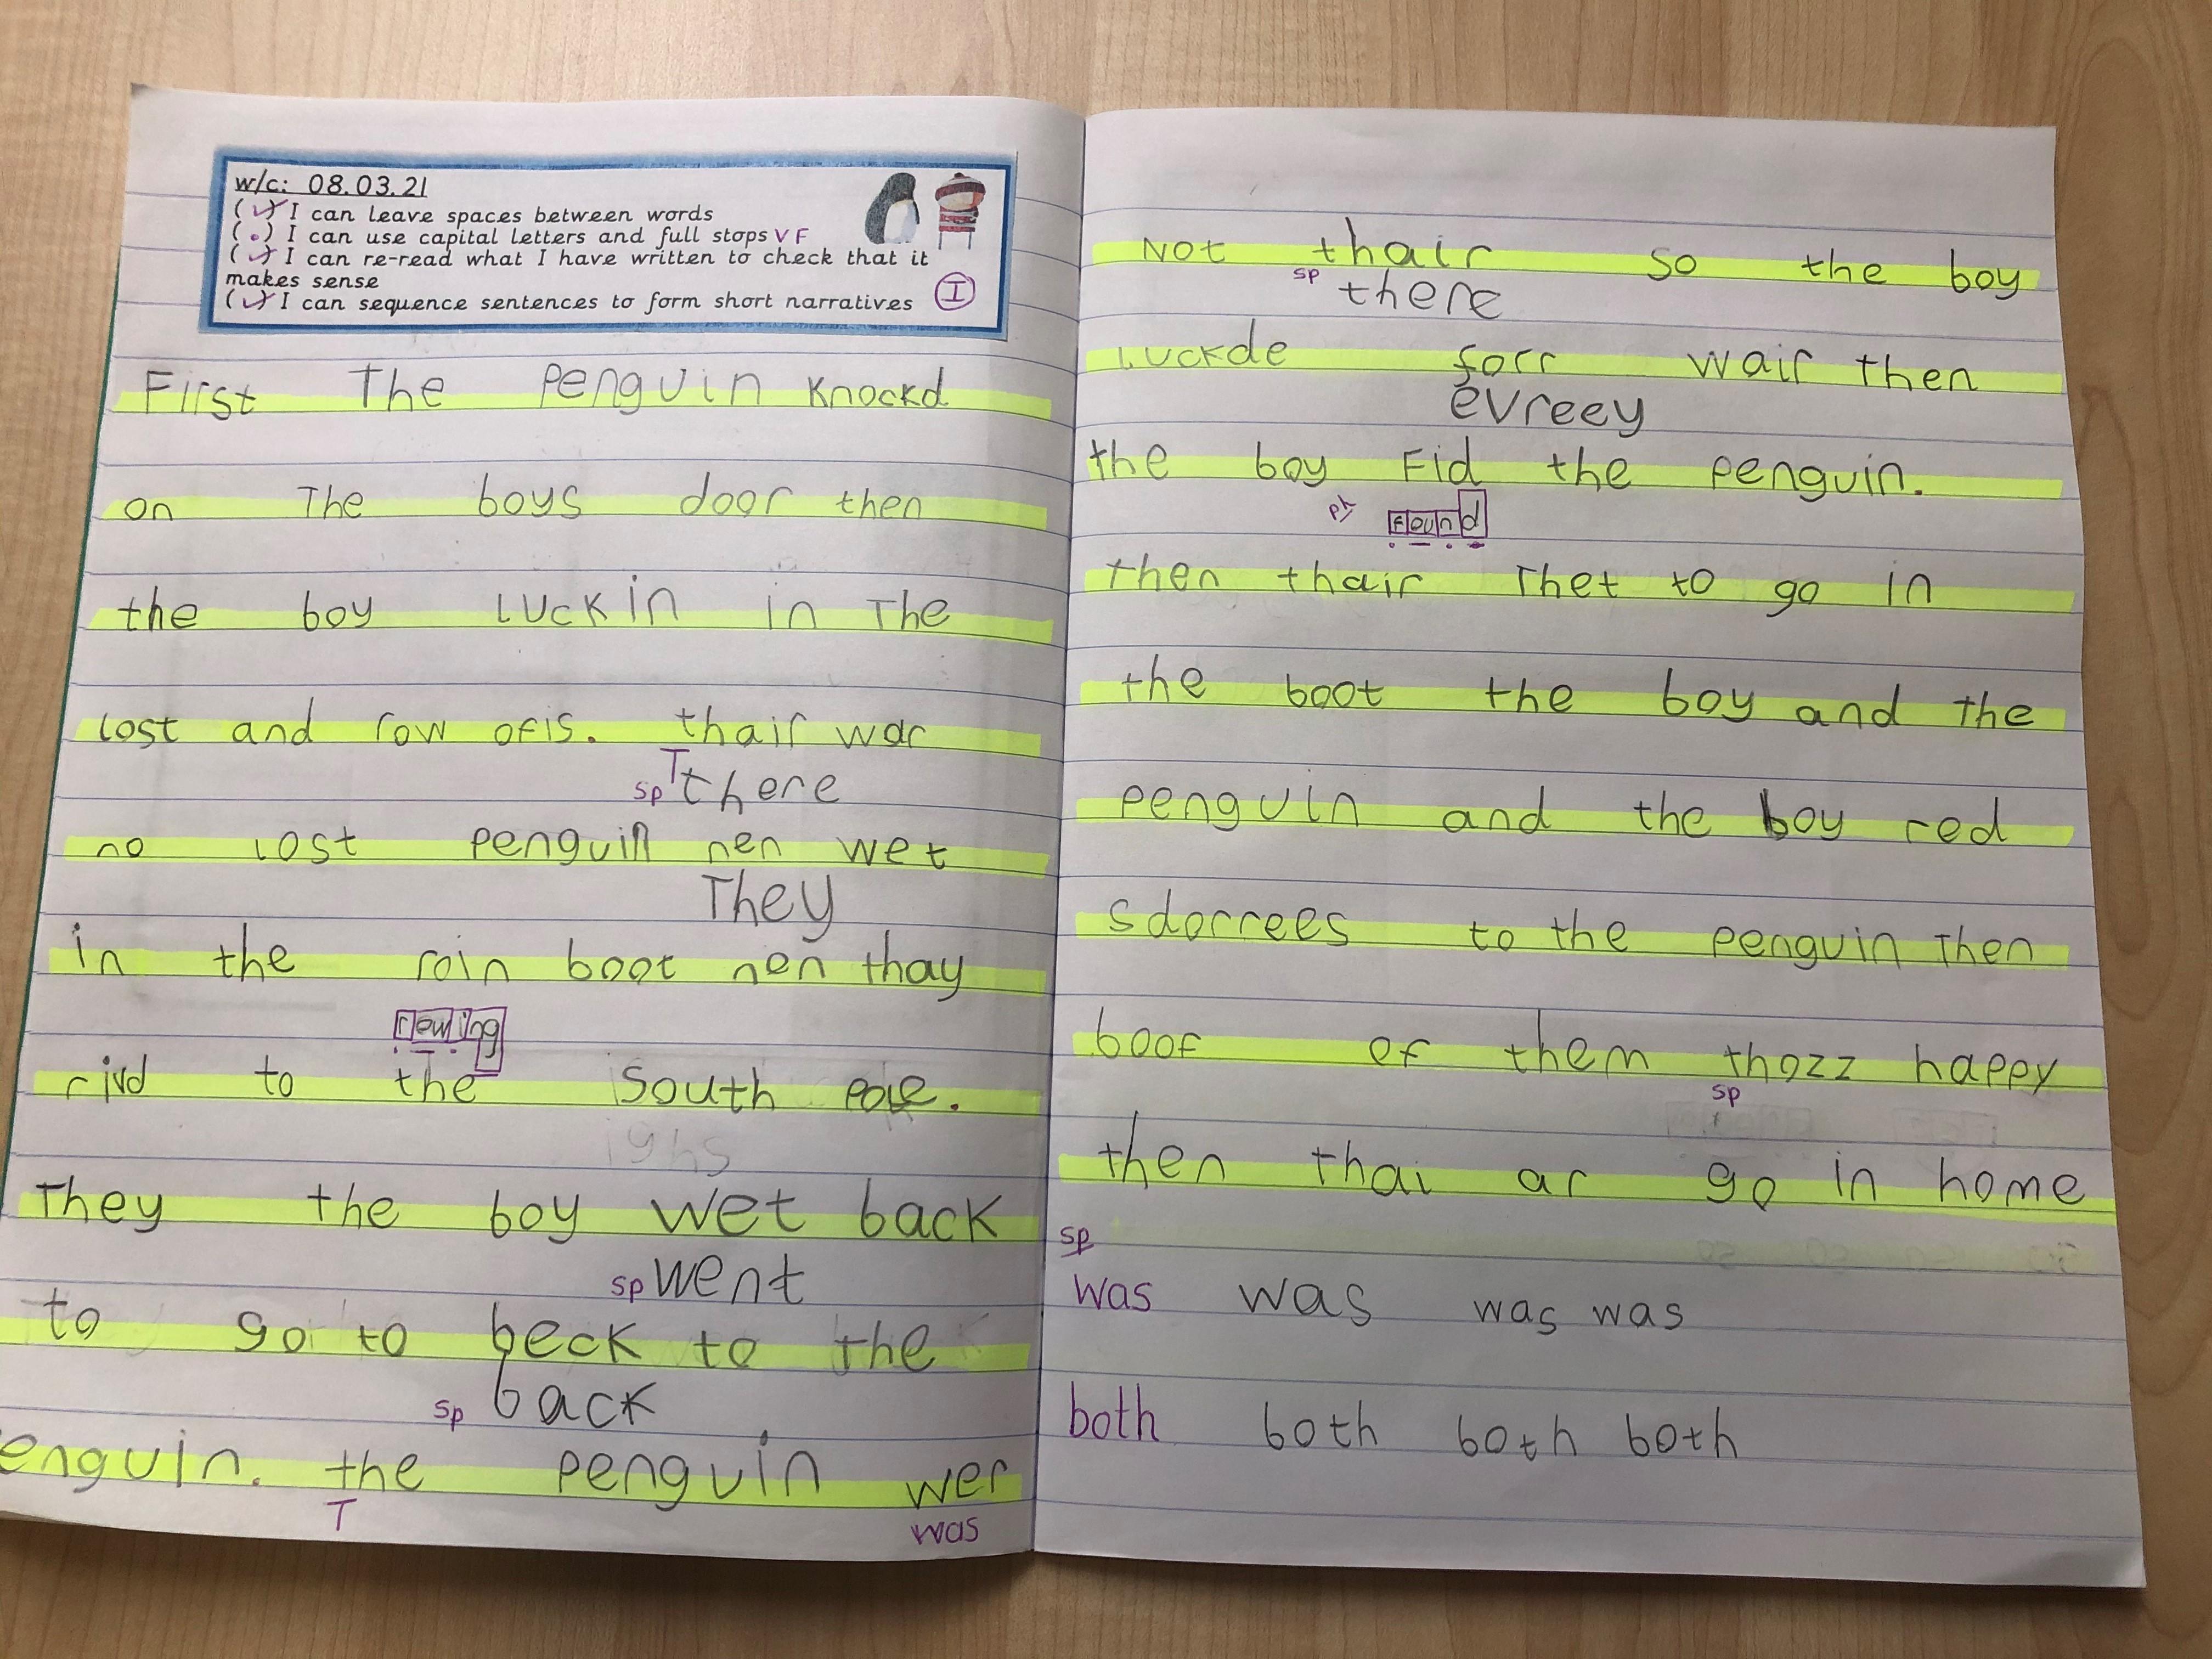 w/c: 08.03.21
(✓) I can leave spaces between words
(.) I can use capital letters and full stops VF
(✓) I can re-read what I have written to check that it
makes sense
(✓) I can sequence sentences to form short narratives I
First The Penguin Knockd
on The boys door then
the boy Luckin in The
Lost and row ofis. thair war
sp T there
no Lost penguin nen wet
They
in the roin boot nen thay
rowing
rivd to the South pole.
ighs
They the boy wet back
sp went
to go to beck to the
sp back
enguin. the penguin wer
T was
Not thair so the boy
sp there
Luckde forr wair then
evreey
the boy Fid the penguin.
ph found
then thair Thet to go in
the boot the boy and the
penguin and the boy red
sdorrees to the penguin Then
boof of them thozz happy
sp
then thai ar go in home
sp
was was was was
both both both both